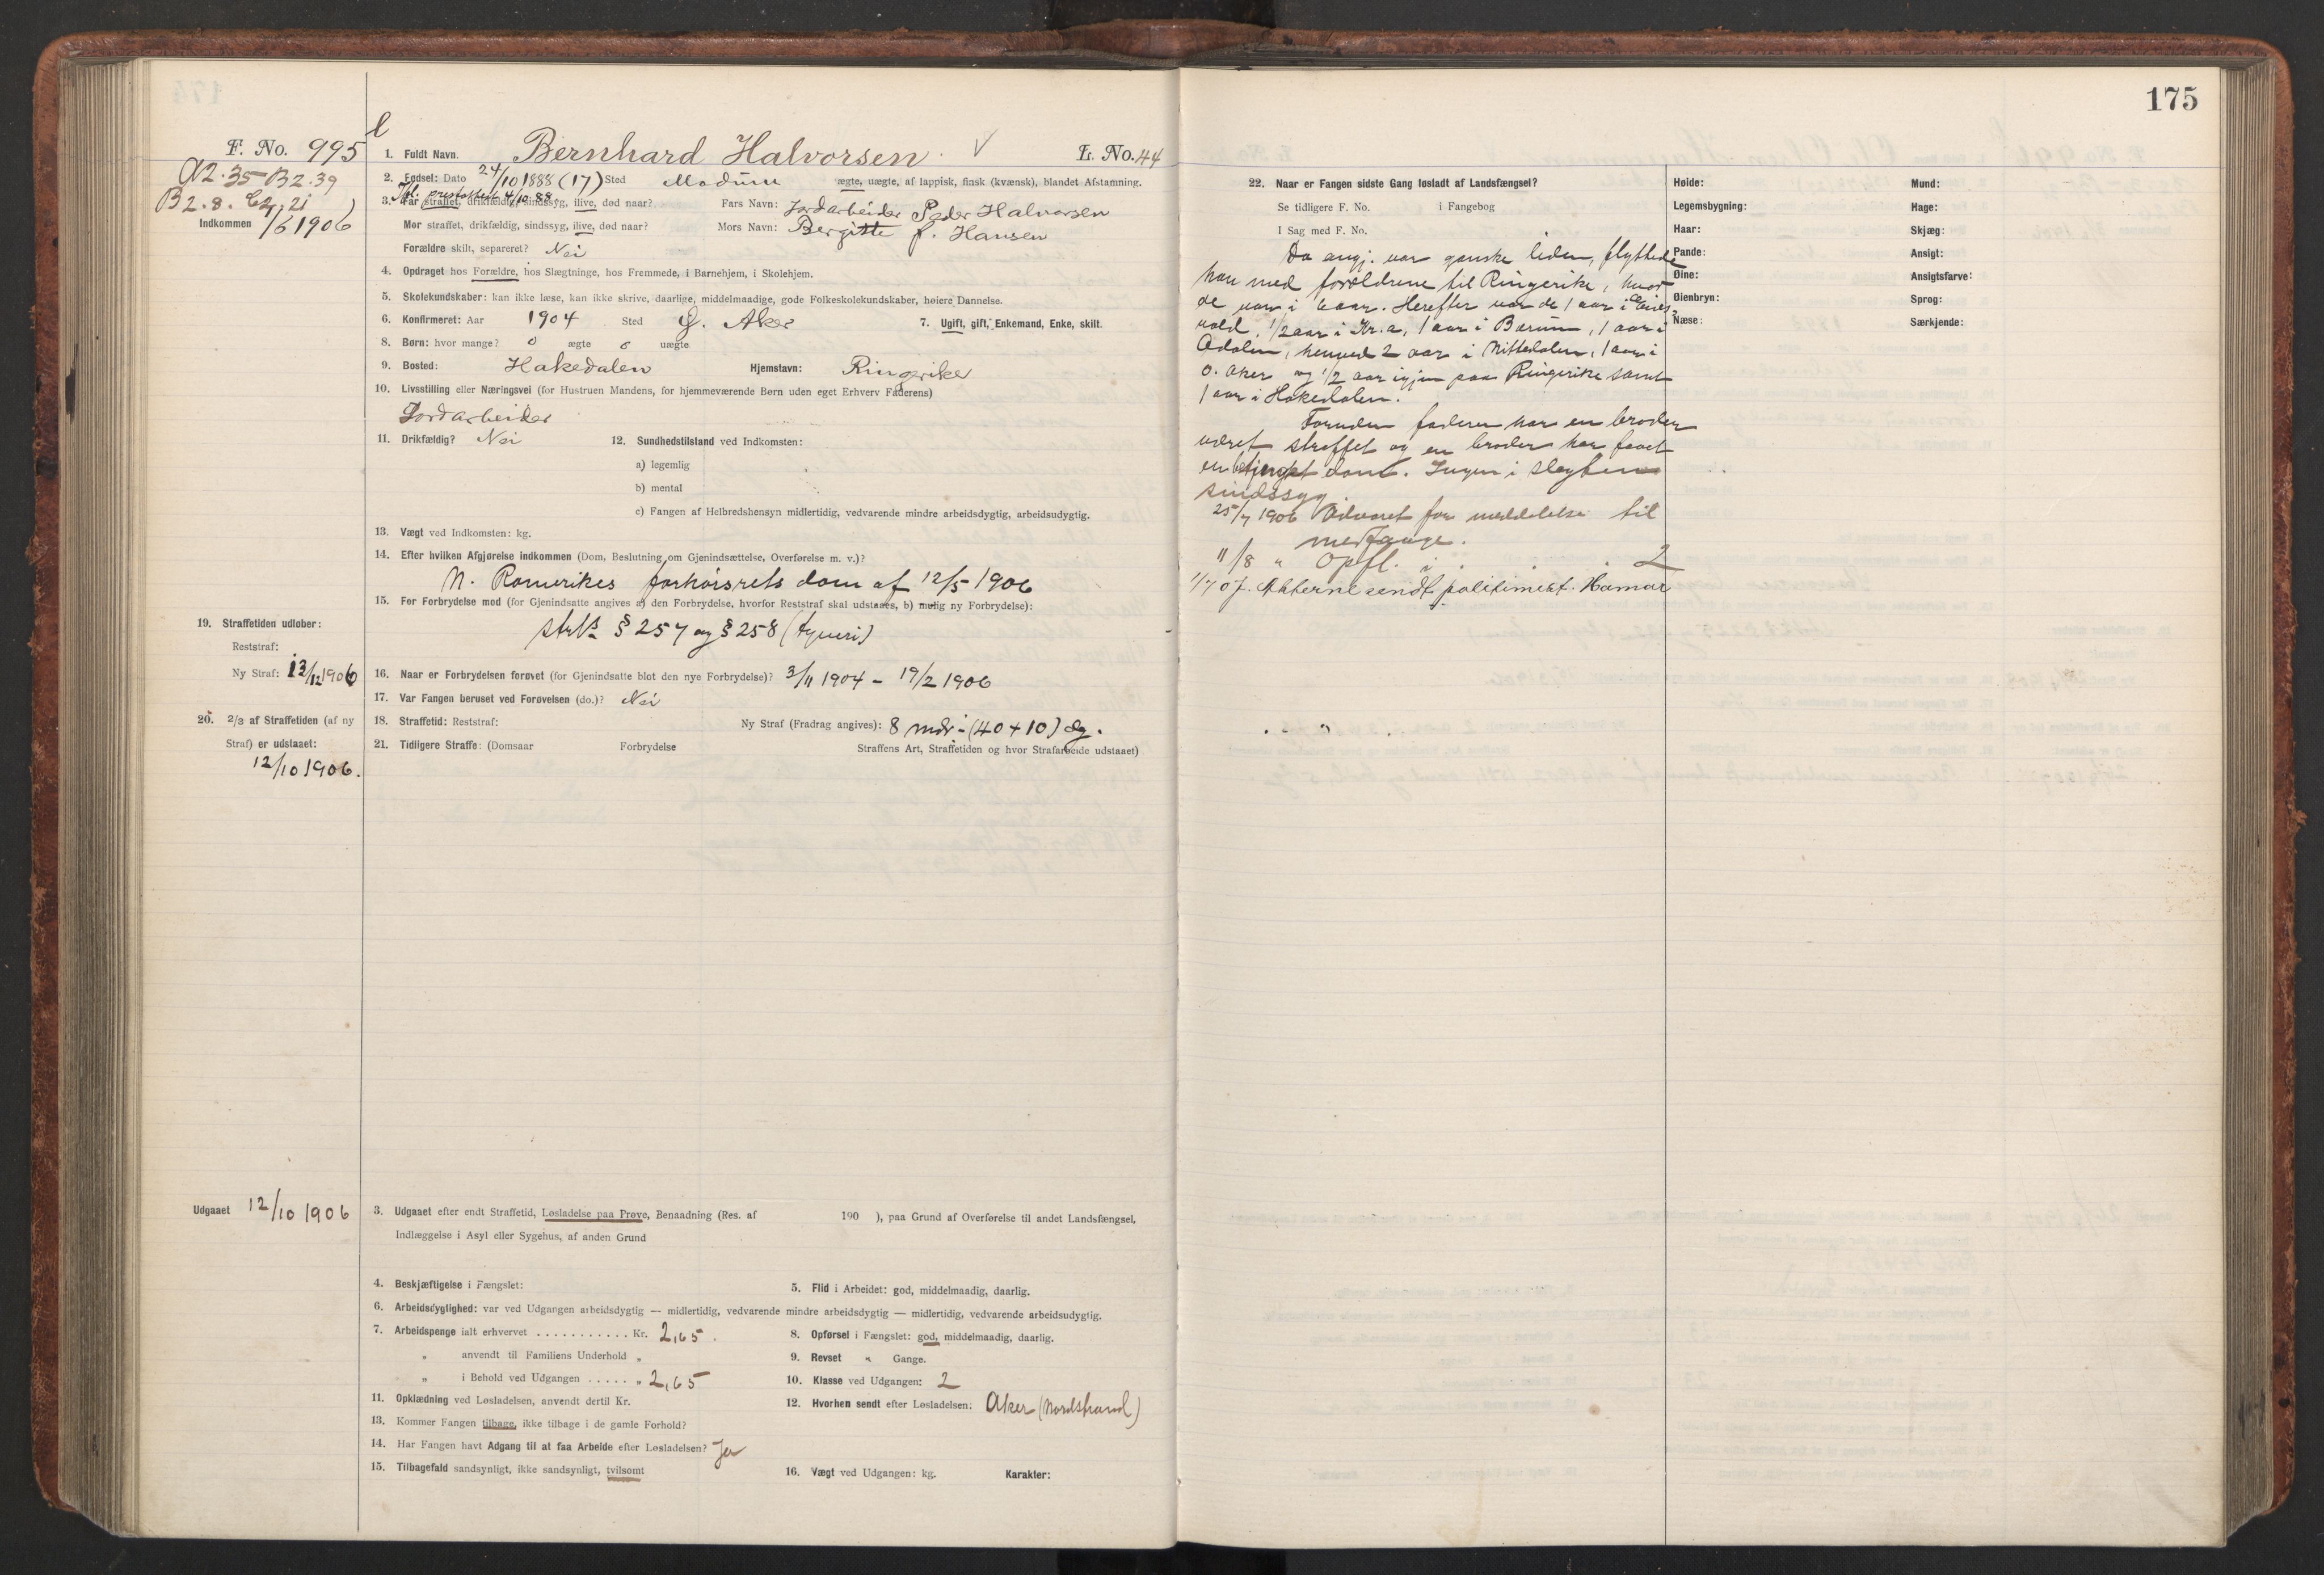 F. No. 995
A2.35 B2.39
B2.8. C4, 21
Indkommen 1/6 1906
1. Fuldt Navn. Bernhard Halvorsen. V L. No. 44
2. Fødsel: Dato 24/10 1888 (17) Sted Modum ægte, uægte, af lappisk, finsk (kvænsk), blandet Afstamning.
Ifl. prestattest 4/10 88.
3. Far straffet, drikfældig, sindssyg, ilive, død naar? Fars Navn: Jordarbeider Peder Halvorsen
Mor straffet, drikfældig, sindssyg, ilive, død naar? Mors Navn: Bergitte f. Hansen
Forældre skilt, separeret? Nei
4. Opdraget hos Forældre, hos Slægtninge, hos Fremmede, i Barnehjem, i Skolehjem.
5. Skolekundskaber: kan ikke læse, kan ikke skrive, daarlige, middelmaadige, gode Folkeskolekundskaber, høiere Dannelse.
6. Konfirmeret: Aar 1904 Sted Ø. Aker 7. Ugift, gift, Enkemand, Enke, skilt.
8. Børn: hvor mange? 0 ægte 0 uægte
9. Bosted: Hakedalen Hjemstavn: Ringerike
10. Livsstilling eller Næringsvei (for Hustruen Mandens, for hjemmeværende Børn uden eget Erhverv Faderens)
Jordarbeider
11. Drikfældig? Nei 12. Sundhedstilstand ved Indkomsten:
a) legemlig
b) mental
c) Fangen af Helbredshensyn midlertidig, vedvarende mindre arbeidsdygtig, arbeidsudygtig.
13. Vægt ved Indkomsten: kg.
14. Efter hvilken Afgjørelse indkommen (Dom, Beslutning om Gjenindsættelse, Overførelse m. v.)?
N. Romerikes forhørsrets dom af 12/5 1906
15. For Forbrydelse mod (for Gjenindsatte angives a) den Forbrydelse, hvorfor Reststraf skal udstaaes, b) mulig ny Forbrydelse):
strls § 257 og § 258 (tyveri)
19. Straffetiden udløber:
Reststraf:
Ny Straf: 13/12 1906
16. Naar er Forbrydelsen forøvet (for Gjenindsatte blot den nye Forbrydelse)? 3/11 1904 - 19/2 1906
17. Var Fangen beruset ved Forøvelsen (do.)? Nei
20. 2/3 af Straffetiden (af ny
Straf) er udstaaet:
12/10 1906.
18. Straffetid: Reststraf: Ny Straf (Fradrag angives): 8 mdr ÷ (40 + 10) dg.
21. Tidligere Straffe: (Domsaar Forbrydelse Straffens Art, Straffetiden og hvor Strafarbeide udstaaet)
Udgaaet 12/10 1906
3. Udgaaet efter endt Straffetid, Løsladelse paa Prøve, Benaadning (Res. af 190 ), paa Grund af Overførelse til andet Landsfængsel,
Indlæggelse i Asyl eller Sygehus, af anden Grund
4. Beskjæftigelse i Fængslet: 5. Flid i Arbeidet: god, middelmaadig, daarlig.
6. Arbeidsdygtighed: var ved Udgangen arbeidsdygtig — midlertidig, vedvarende mindre arbeidsdygtig — midlertidig, vedvarende arbeidsudygtig.
7. Arbeidspenge ialt erhvervet . . . . . . . . . . . Kr. 2,65. 8. Opførsel i Fængslet: god, middelmaadig, daarlig.
„ anvendt til Familiens Underhold „ 9. Revset " Gange.
„ i Behold ved Udgangen . . . . . „ 2,65 10. Klasse ved Udgangen: 2
11. Opklædning ved Løsladelsen, anvendt dertil Kr. 12. Hvorhen sendt efter Løsladelsen: Aker (Nordstrand)
13. Kommer Fangen tilbage, ikke tilbage i de gamle Forhold?
14. Har Fangen havt Adgang til at faa Arbeide efter Løsladelsen? Ja
15. Tilbagefald sandsynligt, ikke sandsynligt, tvilsomt 16. Vægt ved Udgangen: kg. Karakter:
175
22. Naar er Fangen sidste Gang løsladt af Landsfængsel?
Se tidligere F. No. i Fangebog
I Sag med F. No.
Da angj. var ganske liden, flyttede
han med forældrene til Ringerike, hvor
de var i 6 aar. Herefter var de 1 aar i Eids-
vold, 1/2 aar i Kr.a, 1 aar i Bærum, 1 aar i
Ådalen, henved 2 aar i Nittedalen, 1 aar i
Ø. Aker og 1/2 aar igjen paa Ringerike samt
1 aar i Hakedalen.
Foruden faderen har en broder
været straffet og en broder har faaet
en betinget dom. Ingen i slegten
sindssyg.
25/7 1906 Advaret for meddelelse til
medfange.
11/8 " Opfl. i . . . 2
1/7 07. Akterne sendt politimest. Hamar
Høide:
Legemsbygning:
Haar:
Pande:
Øine:
Øienbryn:
Næse:
Mund:
Hage:
Skjæg:
Ansigt:
Ansigtsfarve:
Sprog:
Særkjende: